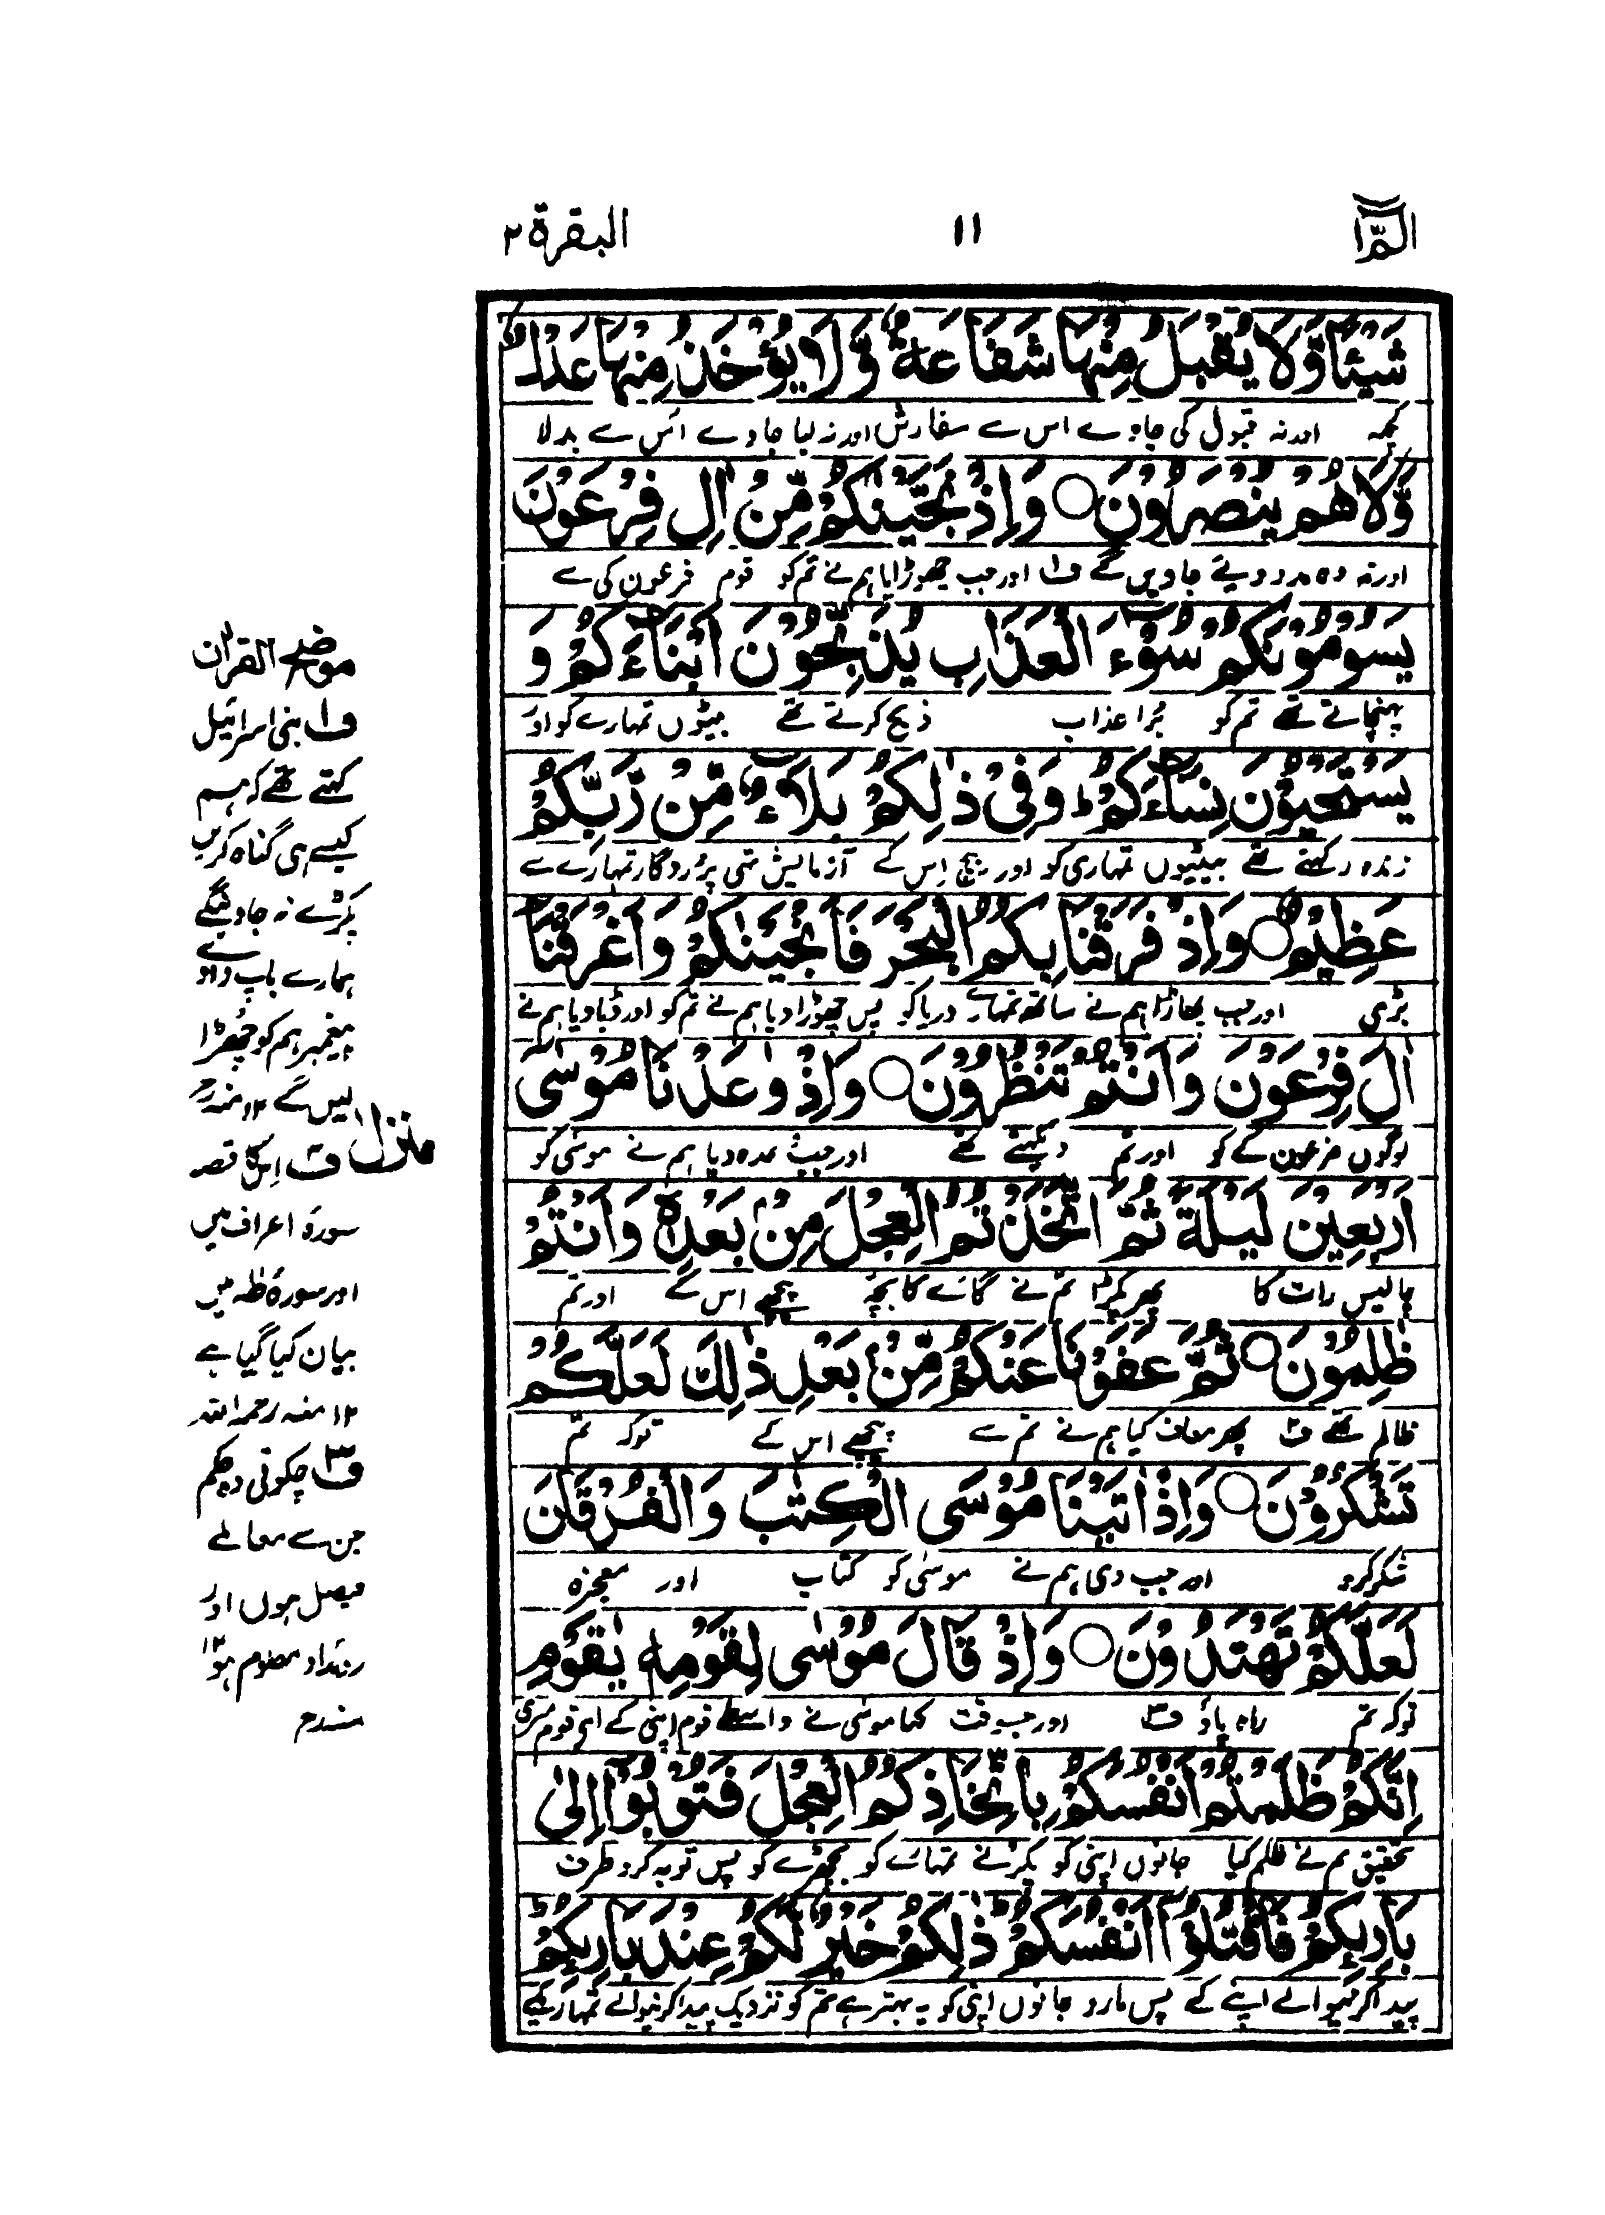 الٓمّٓ ١
١١
البقرة ٢
شَيْئًا وَّلَا يُقْبَلُ مِنْهَا شَفَاعَةٌ وَّلَا يُؤْخَذُ مِنْهَا عَدْلٌ
کچھ اور نہ قبول کی جاوے اس سے سفارش اور نہ لیا جاوے اس سے بدلا
وَّلَا هُمْ يُنْصَرُوْنَ ○ وَاِذْ نَجَّيْنٰكُمْ مِّنْ اٰلِ فِرْعَوْنَ
اور نہ وہ مدد دیئے جاویں گے ف۱ اور جب چھوڑایا ہم نے تم کو قوم فرعون کی سے
يَسُوْمُوْنَكُمْ سُوْٓءَ الْعَذَابِ يُذَبِّحُوْنَ اَبْنَآءَكُمْ وَ
پہنچاتے تھے تم کو بُرا عذاب ذبح کرتے تھے بیٹوں تمہارے کو اور
يَسْتَحْيُوْنَ نِسَآءَكُمْ ؕ وَفِىْ ذٰلِكُمْ بَلَآءٌ مِّنْ رَّبِّكُمْ
زندہ رکھتے تھے بیٹیوں تمہاری کو اور بیچ اِس کے آزمایش تھی پروردگار تمہارے سے
عَظِيْمٌ ○ وَاِذْ فَرَقْنَا بِكُمُ الْبَحْرَ فَاَنْجَيْنٰكُمْ وَاَغْرَقْنَآ
بڑی اور جب پھاڑا ہم نے ساتھ تمہارے دریا کو پس چھوڑا دیا ہم نے تم کو اور ڈبا دیا ہم نے
اٰلَ فِرْعَوْنَ وَاَنْتُمْ تَنْظُرُوْنَ ○ وَاِذْ وٰعَدْنَا مُوْسٰٓى
لوگوں فرعون کے کو اور تم دیکھتے تھے اور جب وعدہ دیا ہم نے موسٰی کو
اَرْبَعِيْنَ لَيْلَةً ثُمَّ اتَّخَذْتُمُ الْعِجْلَ مِنْۢ بَعْدِهٖ وَاَنْتُمْ
چالیس رات کا پھر پکڑا تم نے گائے کا بچّہ پیچھے اس کے اور تم
ظٰلِمُوْنَ ○ ثُمَّ عَفَوْنَا عَنْكُمْ مِّنْۢ بَعْدِ ذٰلِكَ لَعَلَّكُمْ
ظالم تھے ف۲ پھر معاف کیا ہم نے تم سے پیچھے اس کے توکہ تم
تَشْكُرُوْنَ ○ وَاِذْ اٰتَيْنَا مُوْسَى الْكِتٰبَ وَالْفُرْقَانَ
شکر کرو اور جب دی ہم نے موسٰی کو کتاب اور معجزہ
لَعَلَّكُمْ تَهْتَدُوْنَ ○ وَاِذْ قَالَ مُوْسٰى لِقَوْمِهٖ يٰقَوْمِ
توکہ تم راہ پاؤ ف۳ اور جسوقت کہا موسٰی نے واسطے قوم اپنی کے اے قوم میری
اِنَّكُمْ ظَلَمْتُمْ اَنْفُسَكُمْ بِاتِّخَاذِكُمُ الْعِجْلَ فَتُوْبُوْٓا اِلٰى
تحقیق تم نے ظلم کیا جانوں اپنی کو پکڑنے تمہارے کو بچھڑے کو پس توبہ کرو طرف
بَارِئِكُمْ فَاقْتُلُوْٓا اَنْفُسَكُمْ ؕ ذٰلِكُمْ خَيْرٌ لَّكُمْ عِنْدَ بَارِئِكُمْ ؕ
پیدا کرنیوالے اپنے کے پس مارو جانوں اپنی کو یہ بہتر ہے تم کو نزدیک پیدا کرنیوالے تمہارے کے
موضح القرآن
ف۱ بنی اسرائیل
کہتے تھے کہ ہم
کیسے ہی گناہ کریں
پکڑے نہ جاویںگے
ہمارے باپ دادے
پیغمبر ہم کو چھڑا
لیں گے ۱۲ منہ رح
منزل ۱
ف۲ اِس کا قصہ
سورۃ اعراف میں
اور سورۃ طٰہٰ میں
بیان کیا گیا ہے
۱۲ منہ رحمہ اللہ
ف۳ چکوتی وہ حکم
جن سے معاملے
فیصل ہوں اور
روا معلوم ہو ۱۲
منہ رح